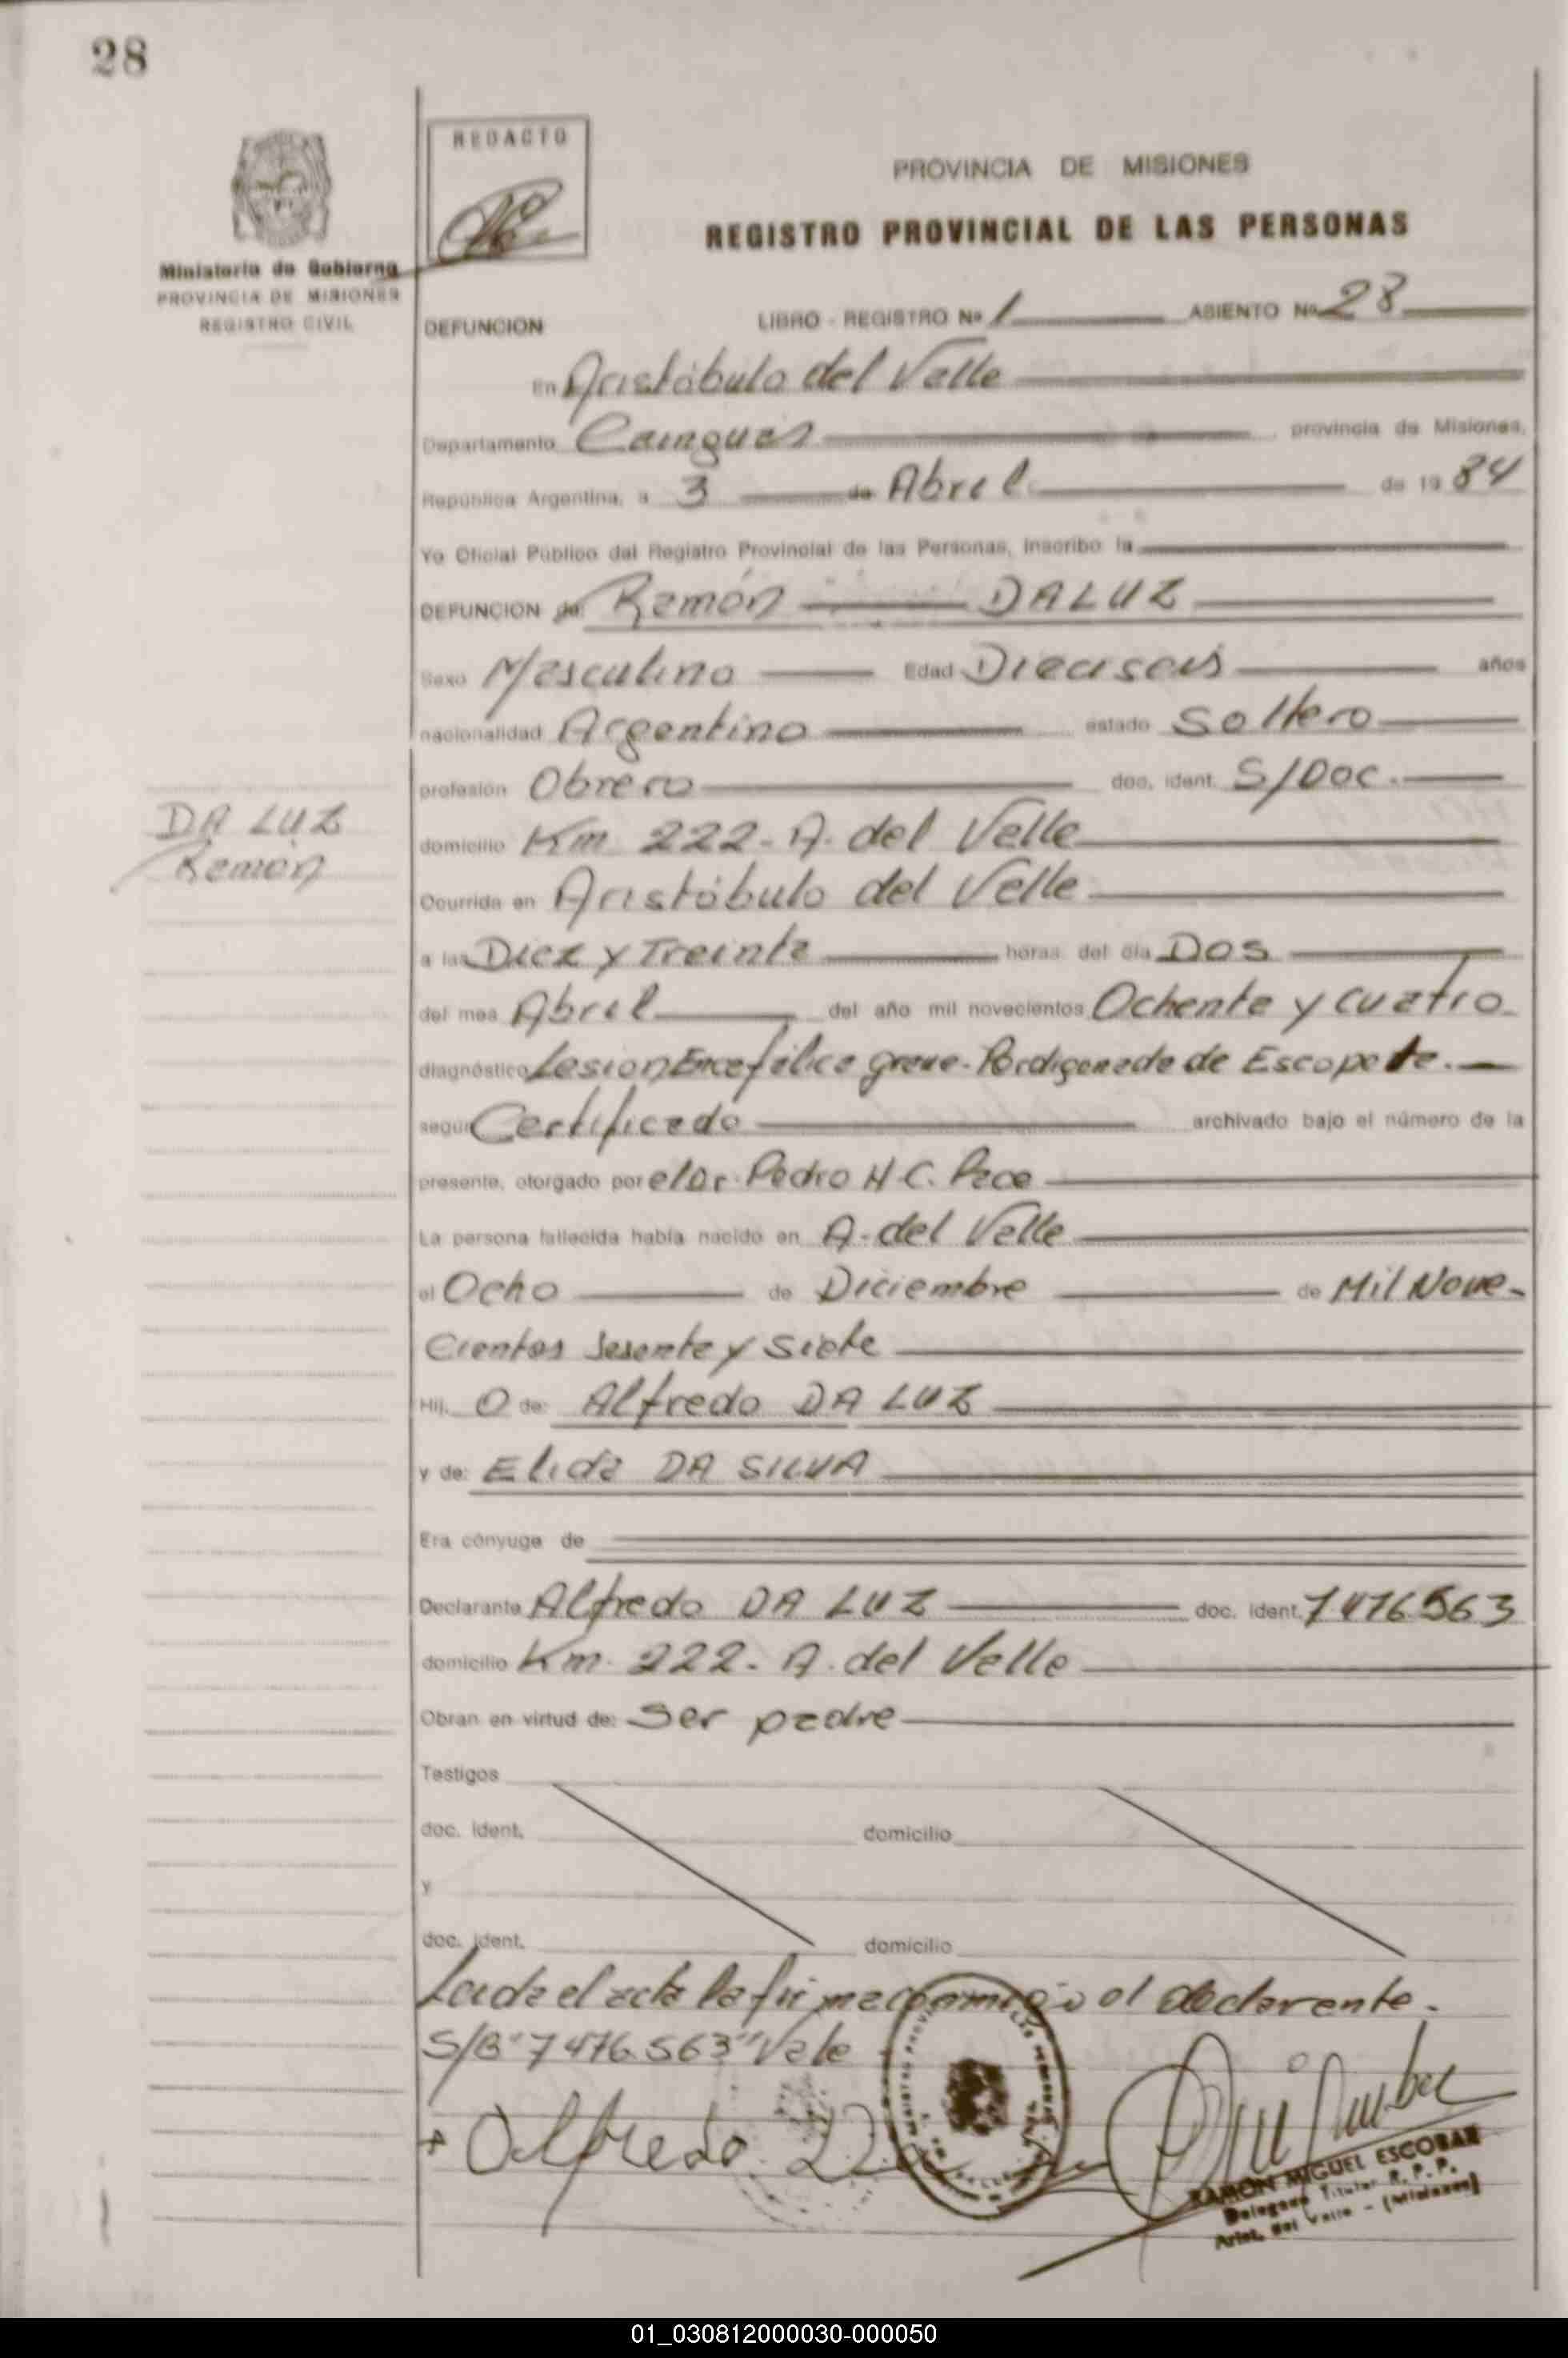 28
REDACTO
PROVINCIA DE MISIONES
REGISTRO PROVINCIAL DE LAS PERSONAS
Ministerio de Gobierno
PROVINCIA DE MISIONES
REGISTRO CIVIL
DEFUNCION LIBRO - REGISTRO Nº 1 ASIENTO Nº 28
En Aristóbulo del Valle
Departamento Cainguas provincia de Misiones,
República Argentina, a 3 de Abril de 19 84
Yo Oficial Público del Registro Provincial de las Personas, inscribo la
DEFUNCION de Ramón DALUZ
Sexo Masculino Edad Dieciseis años
nacionalidad Argentino estado Soltero
profesión Obrero doc. ident. S/Doc.
DA LUZ
Ramón
domicilio Km 222 - A. del Valle
Ocurrida en Aristóbulo del Valle
a las Diez y Treinta horas del día Dos
del mes Abril del año mil novecientos Ochenta y cuatro
diagnóstico Lesion Encefálica grave - Perdigonada de Escopeta.
según Certificado archivado bajo el número de la
presente, otorgado por el Dr. Pedro H. C. Pace
La persona fallecida había nacido en A. del Valle
el Ocho de Diciembre de Mil Nove-
cientos Sesenta y Siete
Hij. O de: Alfredo DA LUZ
y de: Elida DA SILVA
Era cónyuge de
Declarante Alfredo DA LUZ doc. ident. 7476563
domicilio Km. 222 - A. del Valle
Obran en virtud de: Ser padre
Testigos
doc. ident. domicilio
y
doc. ident. domicilio
Leida el acta la firma conmigo el declarante.
S/B "7476.563" Vale
Alfredo
RAMON MIGUEL ESCOBAR
Delegado Titular R. P. P.
Arist. del Valle - (Misiones)
01_030812000030-000050